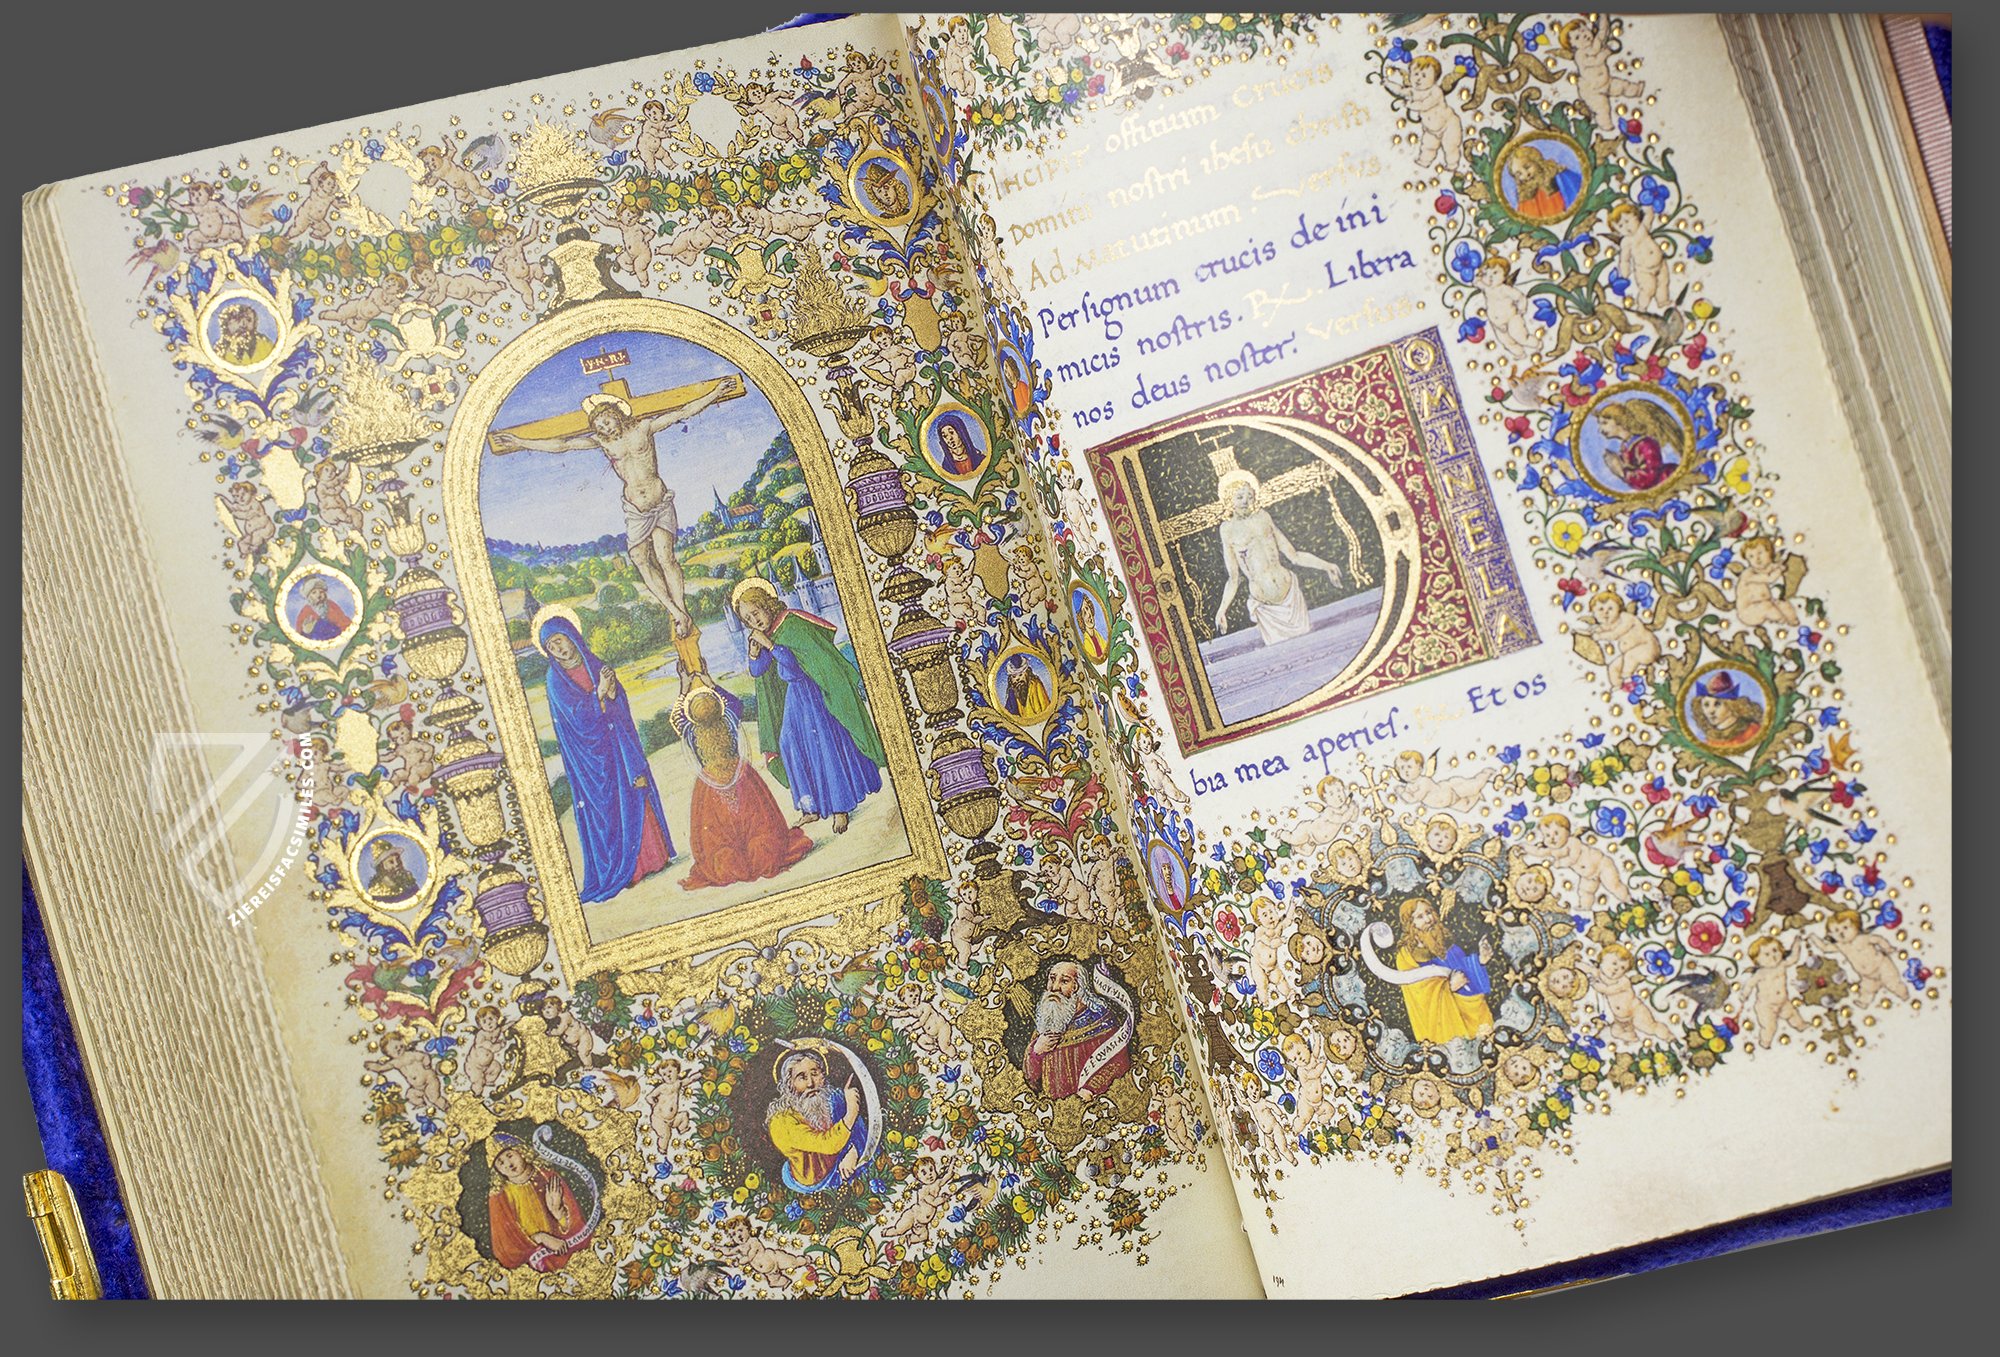 YH·R·I·
INCIPIT offitium CRUCIS
Domini nostri ihesu christi
Ad Maturinum. Versus
Persignum crucis de ini
micis nostris. R Libera
nos deus noster. Versus.
DOMINE LA
bia mea aperies. R Et os
194
ZIEREISFACSIMILES.COM